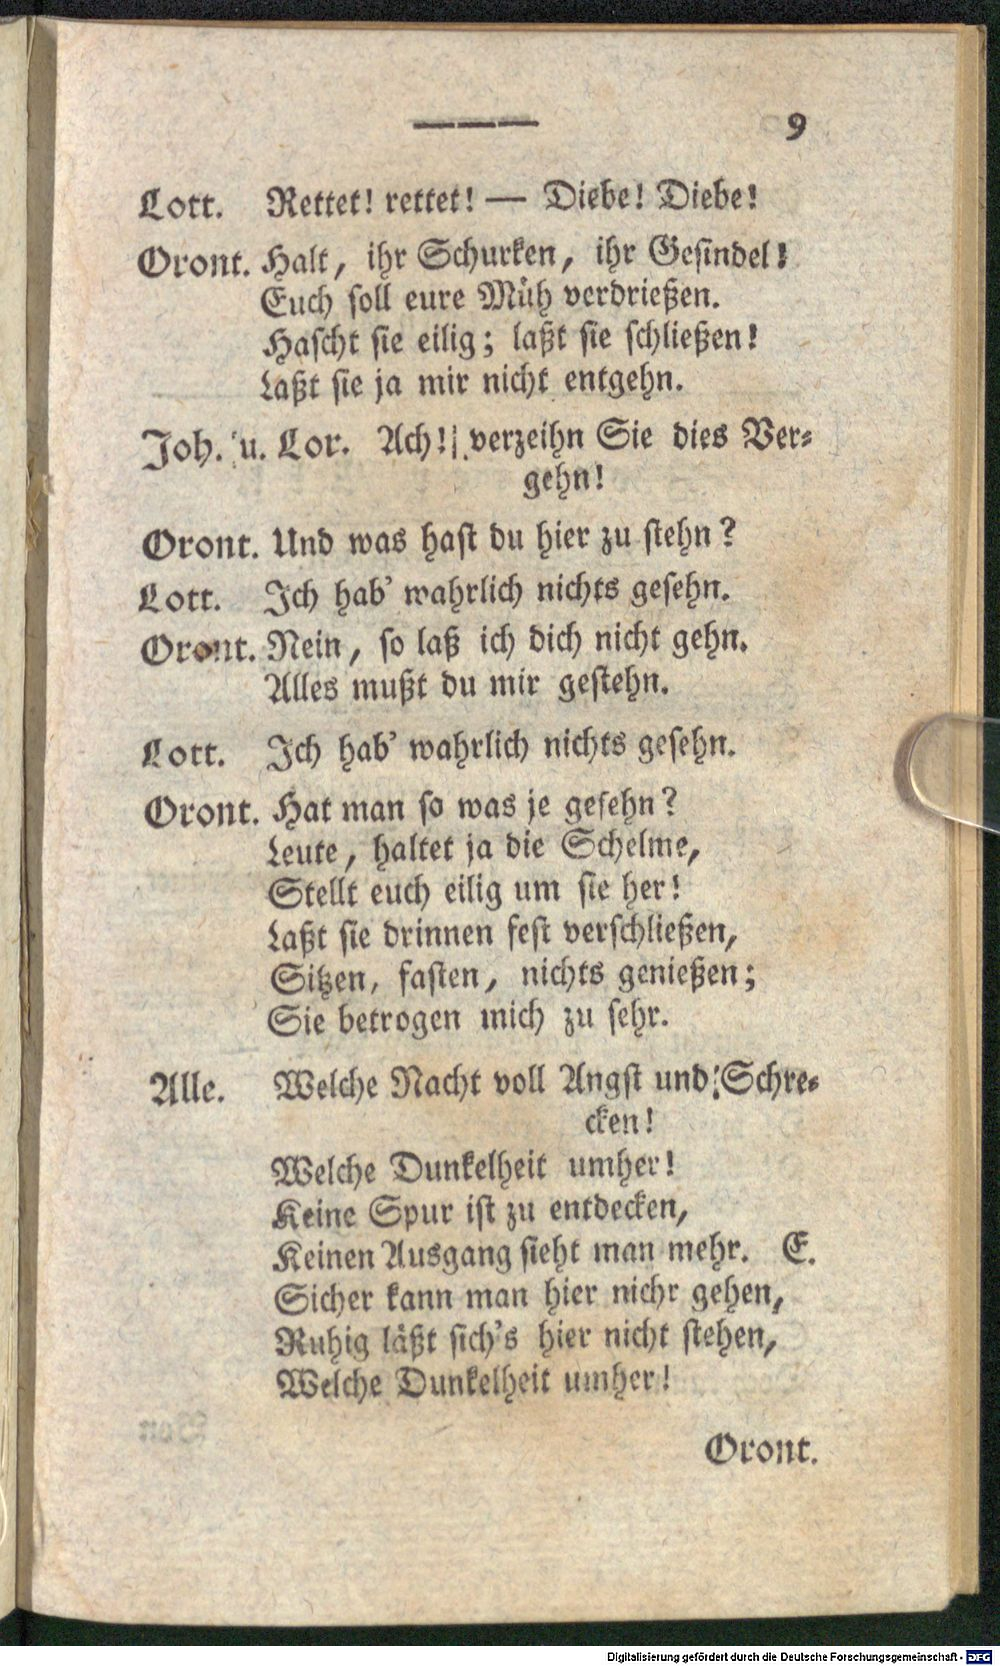 ——— 9
Lott. Rettet! rettet! — Diebe! Diebe!
Oront. Halt, ihr Schurken, ihr Gesindel!
Euch soll eure Müh verdrießen.
Hascht sie eilig; laßt sie schließen!
Laßt sie ja mir nicht entgehn.
Joh. u. Lor. Ach! verzeihn Sie dies Ver-
gehn!
Oront. Und was hast du hier zu stehn?
Lott. Ich hab' wahrlich nichts gesehn.
Oront. Nein, so laß ich dich nicht gehn.
Alles mußt du mir gestehn.
Lott. Ich hab' wahrlich nichts gesehn.
Oront. Hat man so was je gesehn?
Leute, haltet ja die Schelme,
Stellt euch eilig um sie her!
Laßt sie drinnen fest verschließen,
Sitzen, fasten, nichts genießen;
Sie betrogen mich zu sehr.
Alle. Welche Nacht voll Angst und Schre-
cken!
Welche Dunkelheit umher!
Keine Spur ist zu entdecken,
Keinen Ausgang sieht man mehr. E.
Sicher kann man hier nichr gehen,
Ruhig läßt sich's hier nicht stehen,
Welche Dunkelheit umher!
Oront.
Digitalisierung gefördert durch die Deutsche Forschungsgemeinschaft - DFG